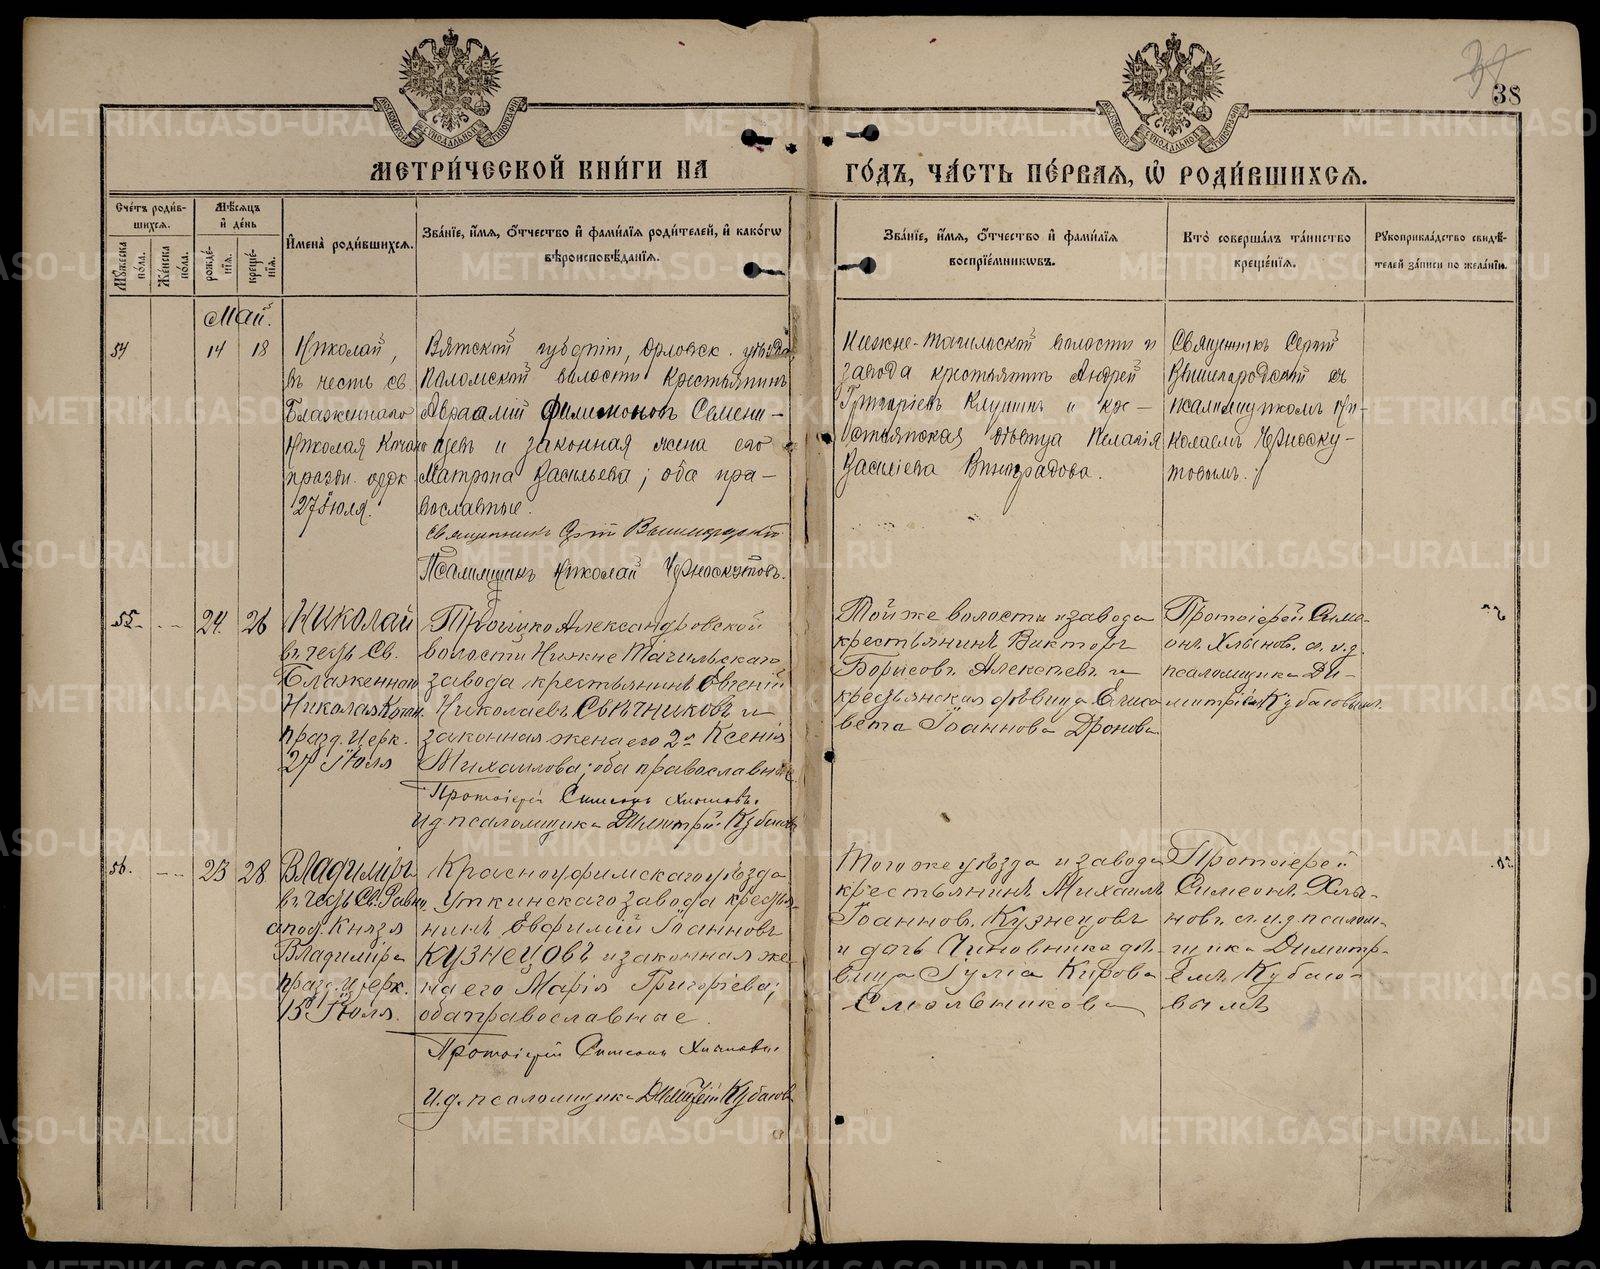 38
38
МЕТРИ́ЧЕСКОЙ КНИ́ГИ НА
ГО́ДЪ, ЧА́СТЬ ПЕ́РВАЯ, Ѽ РОДИ́ВШИХСЯ.
Сче́тъ роди́вшихся.
Му́жеска по́ла.
Же́нска по́ла.
Мѣ́сяцъ и҆ де́нь
рожде́нїя.
креще́нїя.
И҆мена̀ роди́вшихся.
Зва́нїе, и҆́мя, ѻ҆́тчество и҆ фами́лїя роди́телей, и҆ како́гѡ
вѣроисповѣ́данїя.
Зва́нїе, и҆́мя, ѻ҆́тчество и҆ фами́лїя
воспрїе́мникѡвъ.
Кто̀ соверша́лъ та́инство
креще́нїя.
Рꙋкоприкла́дство свидѣ́-
телей за́писи по жела́нїю.
Май.
54
14
18
Николай,
въ честь св
Блаженнаго
Николая Кочано
праздн.
27 Іюля.
Вятской губерніи, Орловск. уѣзда,
Паломской волости крестьянинъ
Авраамій Филимоновъ Семени-
щевъ и законная жена его
Матрона Васильева; оба пра-
вославные.
Священникъ Сергій Вышегородскій
Псаломщикъ Николай Черноскутовъ.
Нижне-Тагильской волости и
завода крестьянинъ Андрей
Григоріевъ Клушинъ и кре-
стьянская дѣвица Пелагія
Васильева Виноградова.
Священникъ Сергій
Вышегородскій съ
псаломщикомъ Ни-
колаемъ Черноску-
товымъ.
55
24
26
Николай
въ честь Св.
Блаженнаго
Николая Кочан.
празд. Церк.
27 Іюля
Троицко Александровской
волости Нижне Тагильскаго
завода крестьянинъ Евгеній
Николаевъ Свѣчниковъ и
законная жена его 2я Ксенія
Михаилова; оба православные.
Протоіерей Симеонъ Хлыновъ.
И.д. псаломщика Димитрій Кубасовъ
Той же волости и завода
крестьянинъ Викторъ
Борисовъ Алексѣевъ и
крестьянская дѣвица Елиса
вета Іоаннова Дронова
Протоіерей Симе-
онъ Хлыновъ. съ и.д.
псаломщика Ди-
митріемъ Кубасовымъ.
56.
23
28
Владиміръ
въ честь Св. Равно
апост. Князя
Владиміра
празд. Церк.
15 Іюля.
Красноуфимскаго уѣзда
Уткинскаго завода крестья-
нинъ Евфимій Іоанновъ
Кузнецовъ и законная же-
на его Марія Григоріева;
оба православные.
Протоіерей Симеонъ Хлыновъ.
И.д. псаломщика Димитрій Кубасовъ
Того же уѣзда и завода
крестьянинъ Михаилъ
Іоанновъ Кузнецовъ
и дочь Чиновника дѣ-
вица Іулія Кирова
Смольникова
Протоіерей
Симеонъ Хлы-
новъ съ и.д. псалом-
щика Димитрі-
емъ Кубасо-
вымъ
METRIKI.GASO-URAL.RU